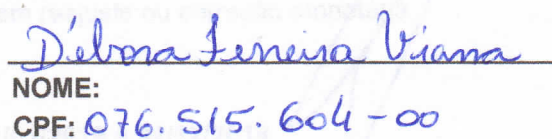 Débora Ferreira Viana
NOME:
CPF: 076.515.604-00